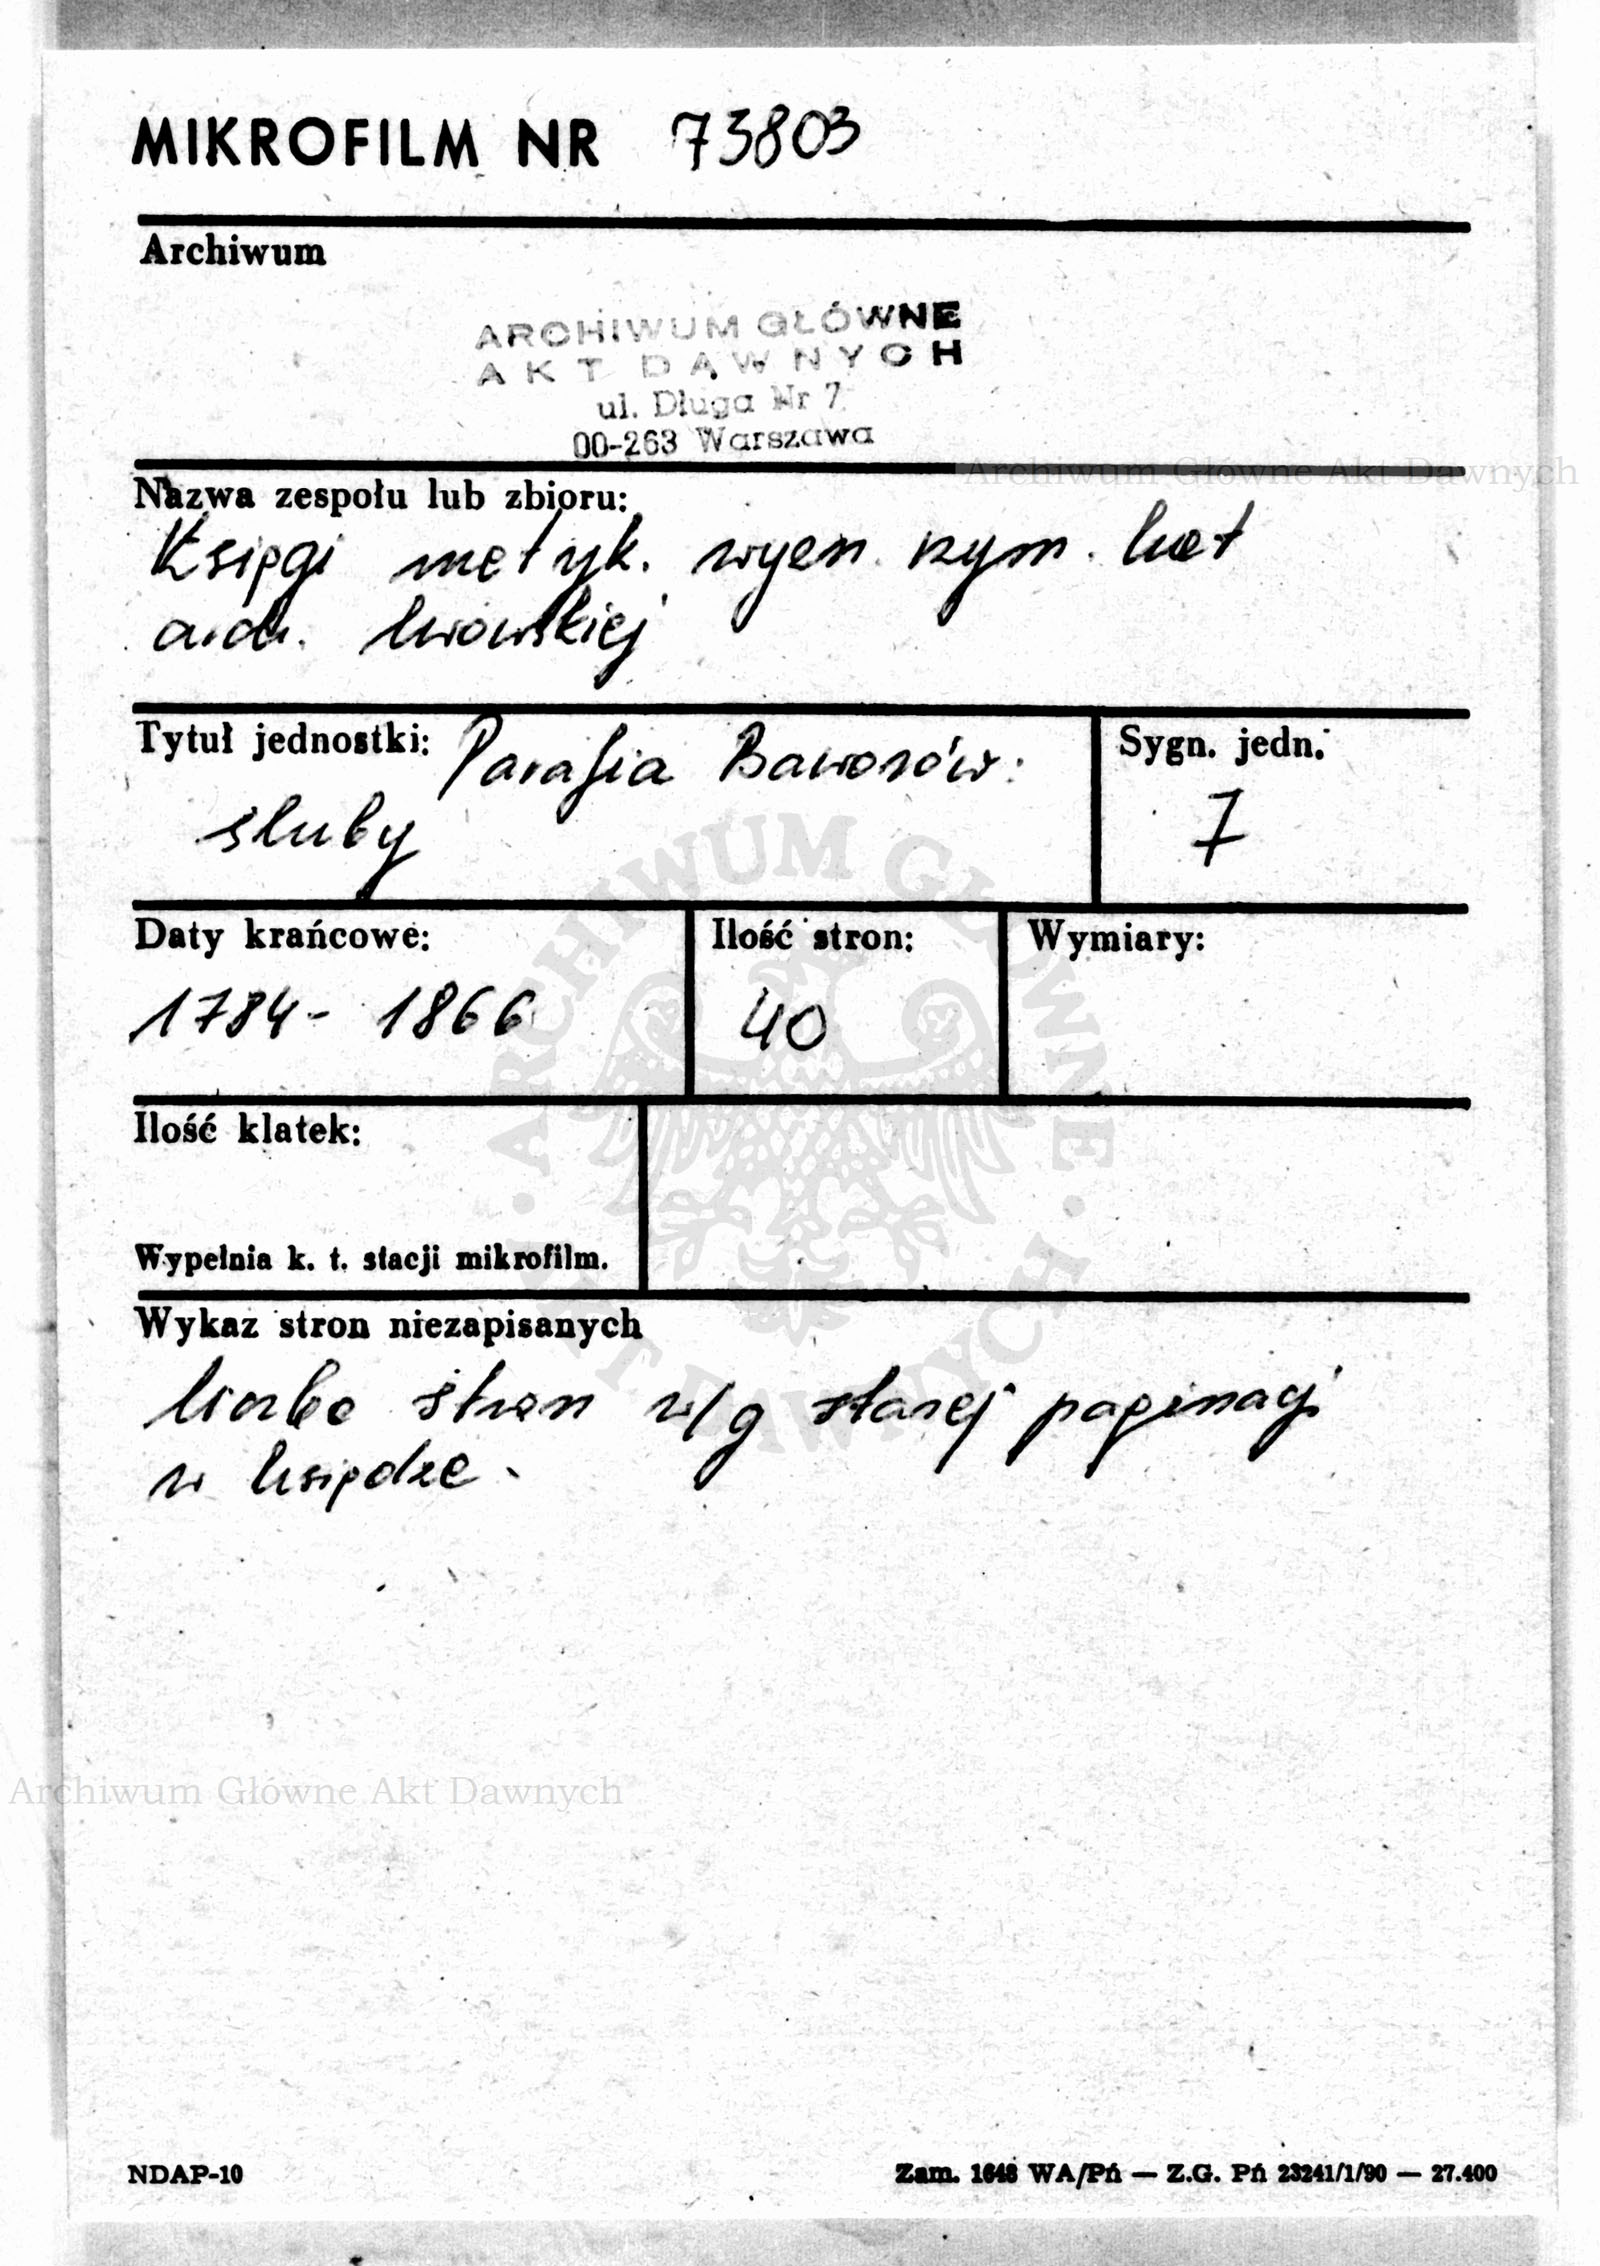 MIKROFILM NR 73803
Archiwum
ARCHIWUM GŁÓWNE
AKT DAWNYCH
ul. Długa Nr 7
00-263 Warszawa
Archiwum Główne Akt Dawnych
Nazwa zespołu lub zbioru:
Księgi metryk. wyzn. rzym. kat
arch. lwowskiej
Tytuł jednostki: Parafia Baworów:
śluby
Sygn. jedn.
7
Daty krańcowe:
1784- 1866
Ilość stron:
40
Wymiary:
Ilość klatek:
Wypełnia k. t. stacji mikrofilm.
ARCHIWUM GŁÓWNE AKT DAWNYCH
Wykaz stron niezapisanych
liczba stron w/g starej paginacji
w księdze.
Archiwum Główne Akt Dawnych
NDAP-10
Zam. 1646 WA/Pń — Z.G. Pń 23241/1/90 — 27.400